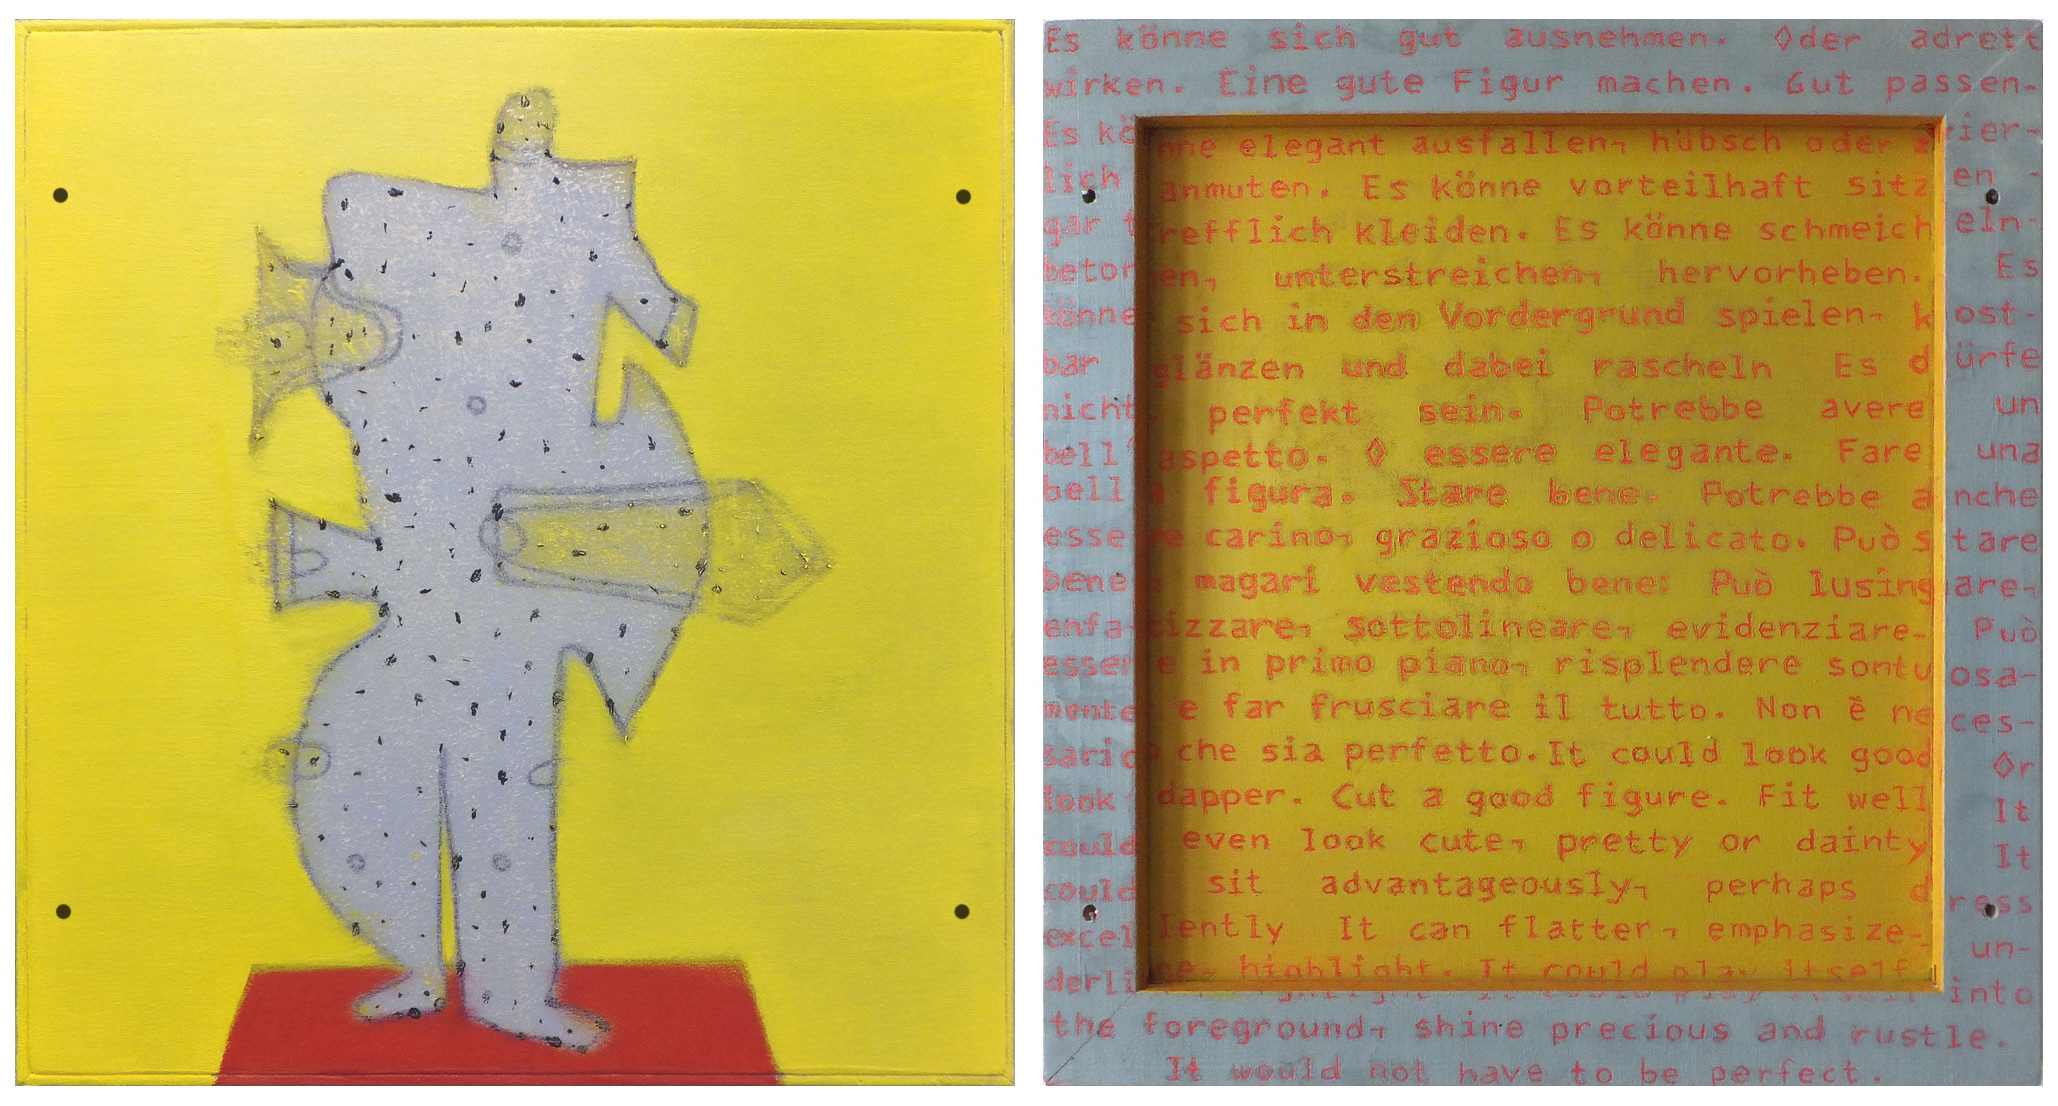 Es könne sich gut ausnehmen. Oder adrett
wirken. Eine gute Figur machen. Gut passen-
Es könne elegant ausfallen, hübsch oder zier-
lich anmuten. Es könne vorteilhaft sitzen -
gar trefflich kleiden. Es könne schmeicheln-
betonen, unterstreichen, hervorheben. Es
könne sich in den Vordergrund spielen- kost-
bar glänzen und dabei rascheln Es dürfe
nicht perfekt sein. Potrebbe avere un
bell'aspetto. O essere elegante. Fare una
bella figura. Stare bene. Potrebbe anche
essere carino, grazioso o delicato. Può stare
bene magari vestendo bene: Può lusingare,
enfatizzare, sottolineare, evidenziare. Può
essere in primo piano, risplendere sontuosa-
mente e far frusciare il tutto. Non è neces-
sario che sia perfetto. It could look good Or
look dapper. Cut a good figure. Fit well It
could even look cute, pretty or dainty It
could sit advantageously, perhaps dress
excellently It can flatter, emphasize- un-
derline, highlight. It could play itself into
the foreground, shine precious and rustle.
It would not have to be perfect.